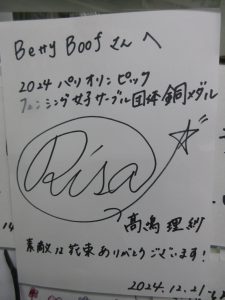 Betty Boofさんへ
2024 パリオリンピック
フェンシング女子サーブル団体銅メダル
Risa
髙嶋理紗
素敵な花束ありがとうございます!
2024.12.21